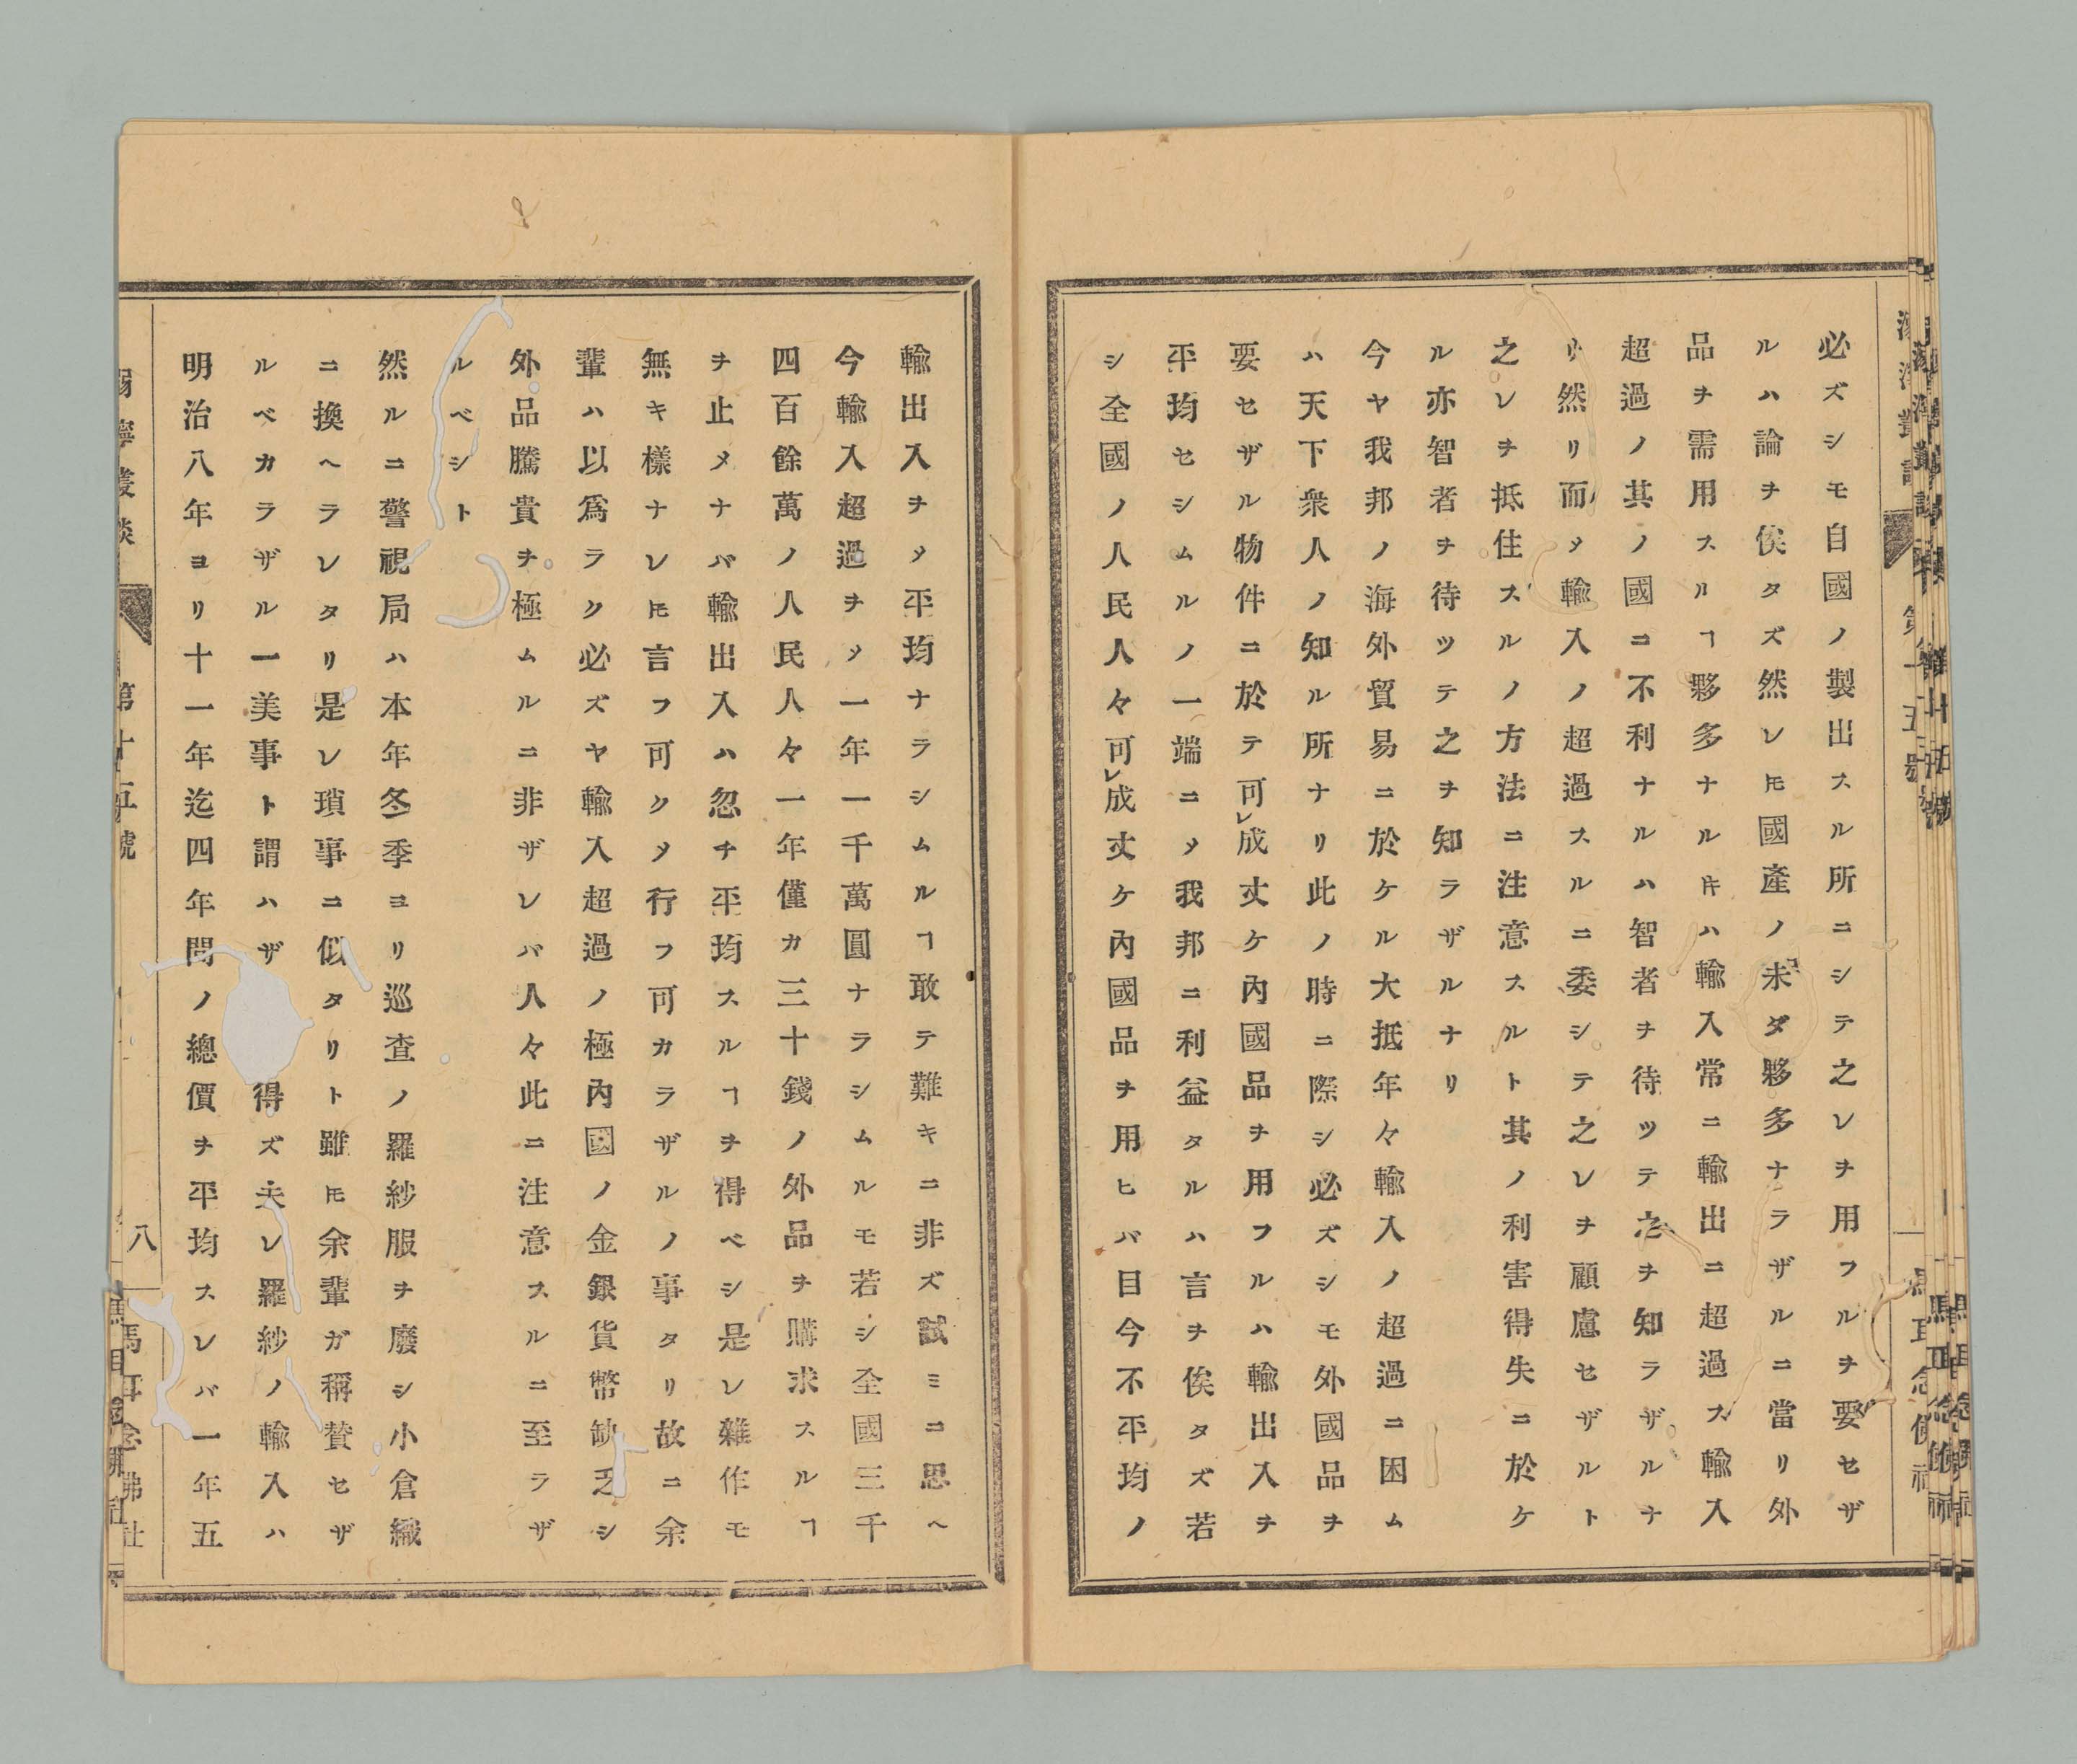 必ズシモ自國ノ製出スル所ニシテ之レヲ用フルヲ要セザ
ルハ論ヲ俟タズ然レ𪜈國產ノ未ダ夥多ナラザルニ當リ外
品ヲ需用スルヿ夥多ナル𪜈ハ輸入常ニ輸出ニ超過ス輸入
超過ノ其ノ國ニ不利ナルハ智者ヲ待ツテ之ヲ知ラザルナ
リ然リ而〆輸入ノ超過スルニ委シテ之レヲ顧慮セザルト
之レヲ抵住スルノ方法ニ注意スルト其ノ利害得失ニ於ケ
ル亦智者ヲ待ツテ之ヲ知ラザルナリ
今ヤ我邦ノ海外貿易ニ於ケル大抵年々輸入ノ超過ニ困ム
ハ天下衆人ノ知ル所ナリ此ノ時ニ際シ必ズシモ外國品ヲ
要セザル物件ニ於テ可レ成丈ケ內國品ヲ用フルハ輸出入ヲ
平均セシムルノ一端ニ〆我邦ニ利益タルハ言ヲ俟タズ若
シ全國ノ人民人々可レ成丈ケ內國品ヲ用ヒバ目今不平均ノ
輸出入ヲ〆平均ナラシムルヿ敢テ難キニ非ズ試ミニ思ヘ
今輸入超過ヲ〆一年一千萬圓ナラシムルモ若シ全國三千
四百餘萬ノ人民人々一年僅カ三十錢ノ外品ヲ購求スルヿ
ヲ止メナバ輸出入ハ忽チ平均スルヿヲ得ベシ是レ雜作モ
無キ樣ナレ𪜈言フ可ク〆行フ可カラザルノ事タリ故ニ余
輩ハ以爲ラク必ズヤ輸入超過ノ極內國ノ金銀貨幣缺乏シ
外品騰貴ヲ極ムルニ非ザレバ人々此ニ注意スルニ至ラザ
ルベシト
然ルニ警視局ハ本年冬季ヨリ巡査ノ羅紗服ヲ廢シ小倉織
ニ換ヘラレタリ是レ瑣事ニ似タリト雖𪜈余輩ガ稱賛セザ
ルベカラザル一美事ト謂ハザ得ズ夫レ羅紗ノ輸入ハ
明治八年ヨリ十一年迄四年間ノ總價ヲ平均スレバ一年五
第十五號
八